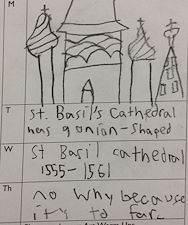 M
T
St. Basil's Cathedral
has 9 onion-shaped
W
St Basil cathedral
1555-1561
Th
no why because
it's to far